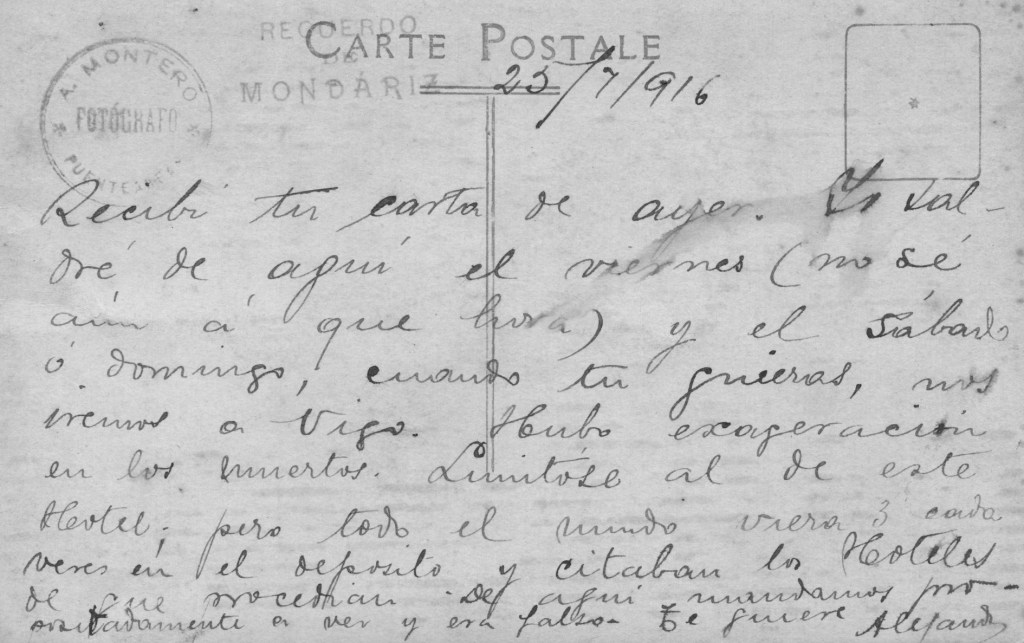 RECUERDO
DE
MONDARIZ
CARTE POSTALE
A. MONTERO
FOTÓGRAFO
25/7/916
Recibi tu carta de ayer. Yo sal-
dré de aquí el viernes (no sé
aún á que hora) y el sábado
ó domingo, cuando tu quieras, nos
iremos a Vigo. Hubo exageración
en los muertos. Limitóse al de este
Hotel; pero todo el mundo viera 3 cada
veres en el deposito y citaban los Hoteles
de que procedian. De aqui mandamos pro-
positadamente a ver y era falso. Te quiere Alejandro